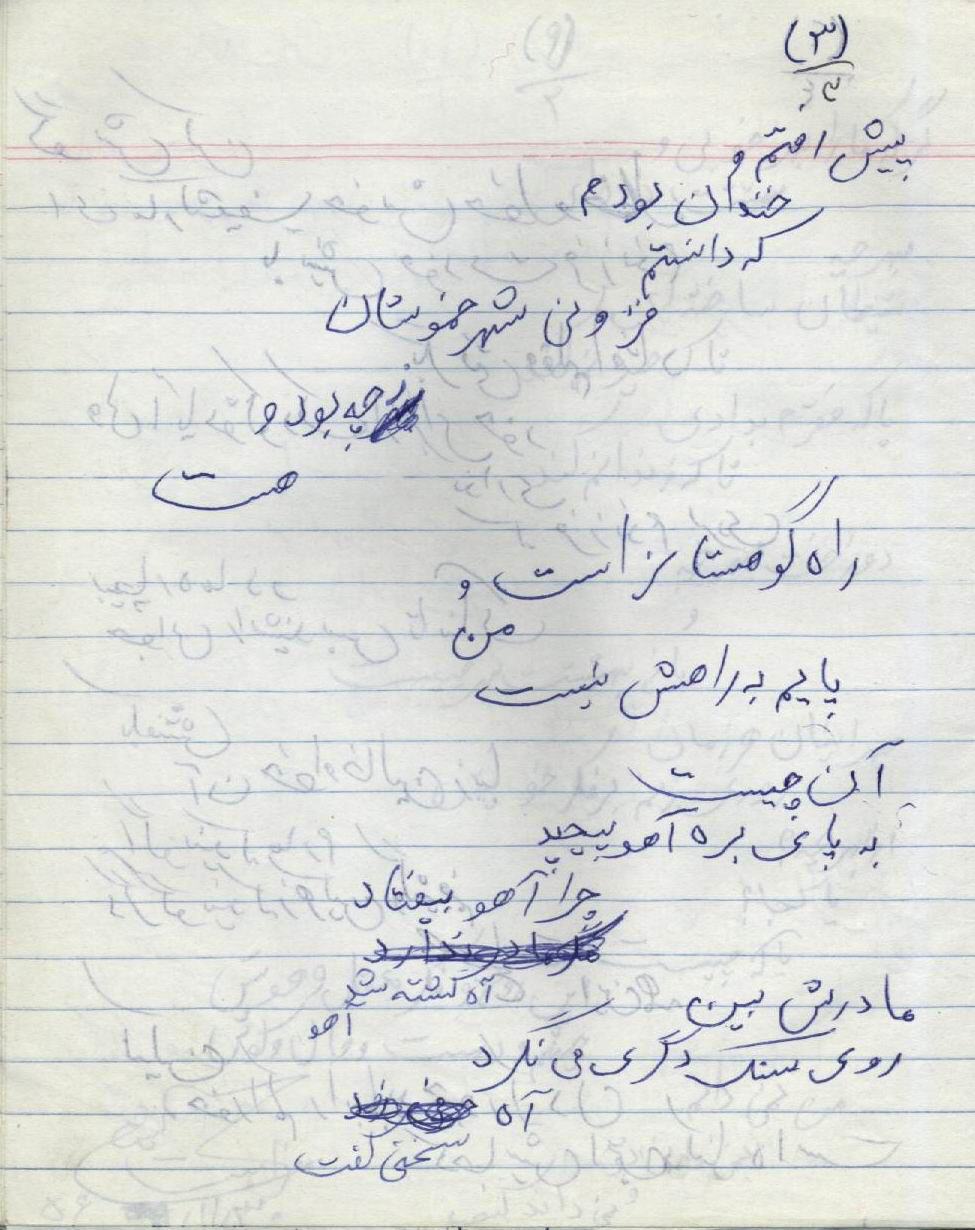 (۳)
۴
پیش افتم و
خندان بودم
که دانستم
فزونی شهر خموشان
ز چه بود و
هست
راه گوهستانز است و
من
پایم به راهش نیست
آن چیست
به پای بره آهو پیچید
چرا آهو بیفتاد
مادر ندارد
آه کشته شد
مادرش بین
آهو
روی سنگ دگری می نگرد
آه
سخنی گفت